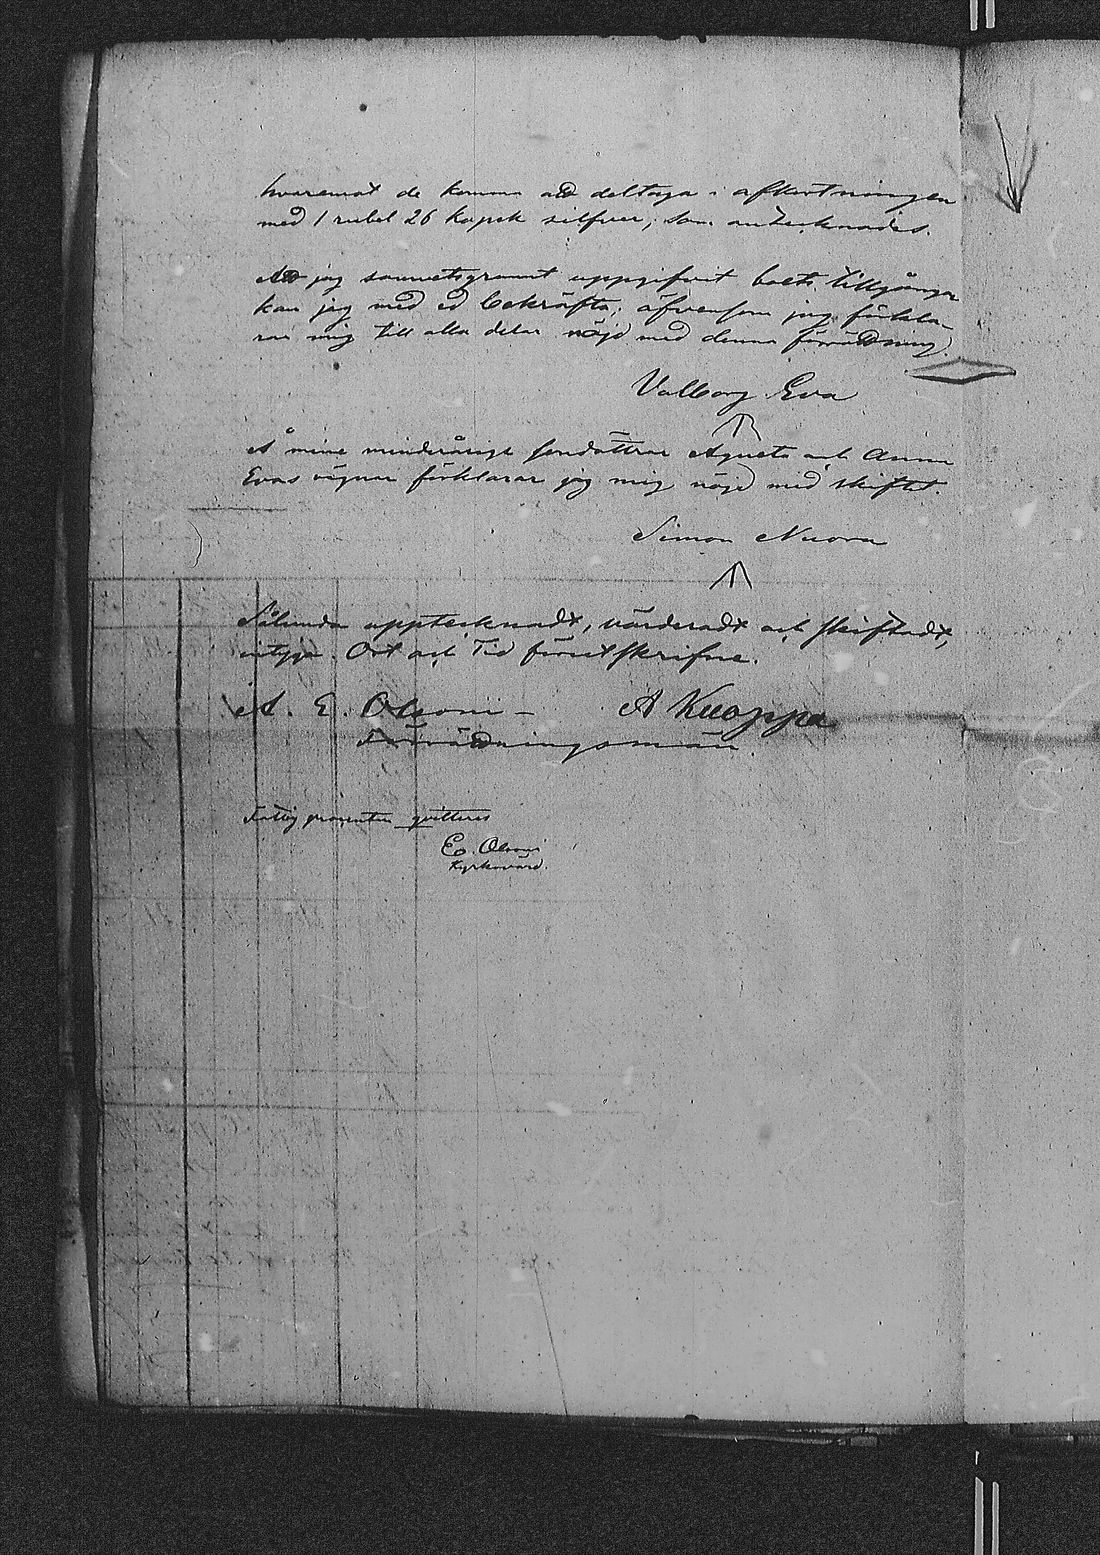 hvaremot de komma att deltaga i afkortningen
med 1 rubel 26 kopek silfver, som antecknades.
Att jag samvetsgrannt uppgifvit boets tillgångar
kan jag med ed bekräfta; äfvensom jag förkla-
rar mig till alla delar nöjd med denna förrättning.
Valborg Eva
Å mine minderåriga sondöttrar Agneta och Anna
Evas vägnar förklarar jag mig nöjd med skiftet.
Simon Nuora
Sålunda upptecknadt, värderadt och skiftadt,
intyga. Ort och Tid förutskrifne.
A. E. Olsoni - A Knoppa
Förrättningsmän.
Fattig procenten qvitteras
E. Olsoni
Kyrkovärd.